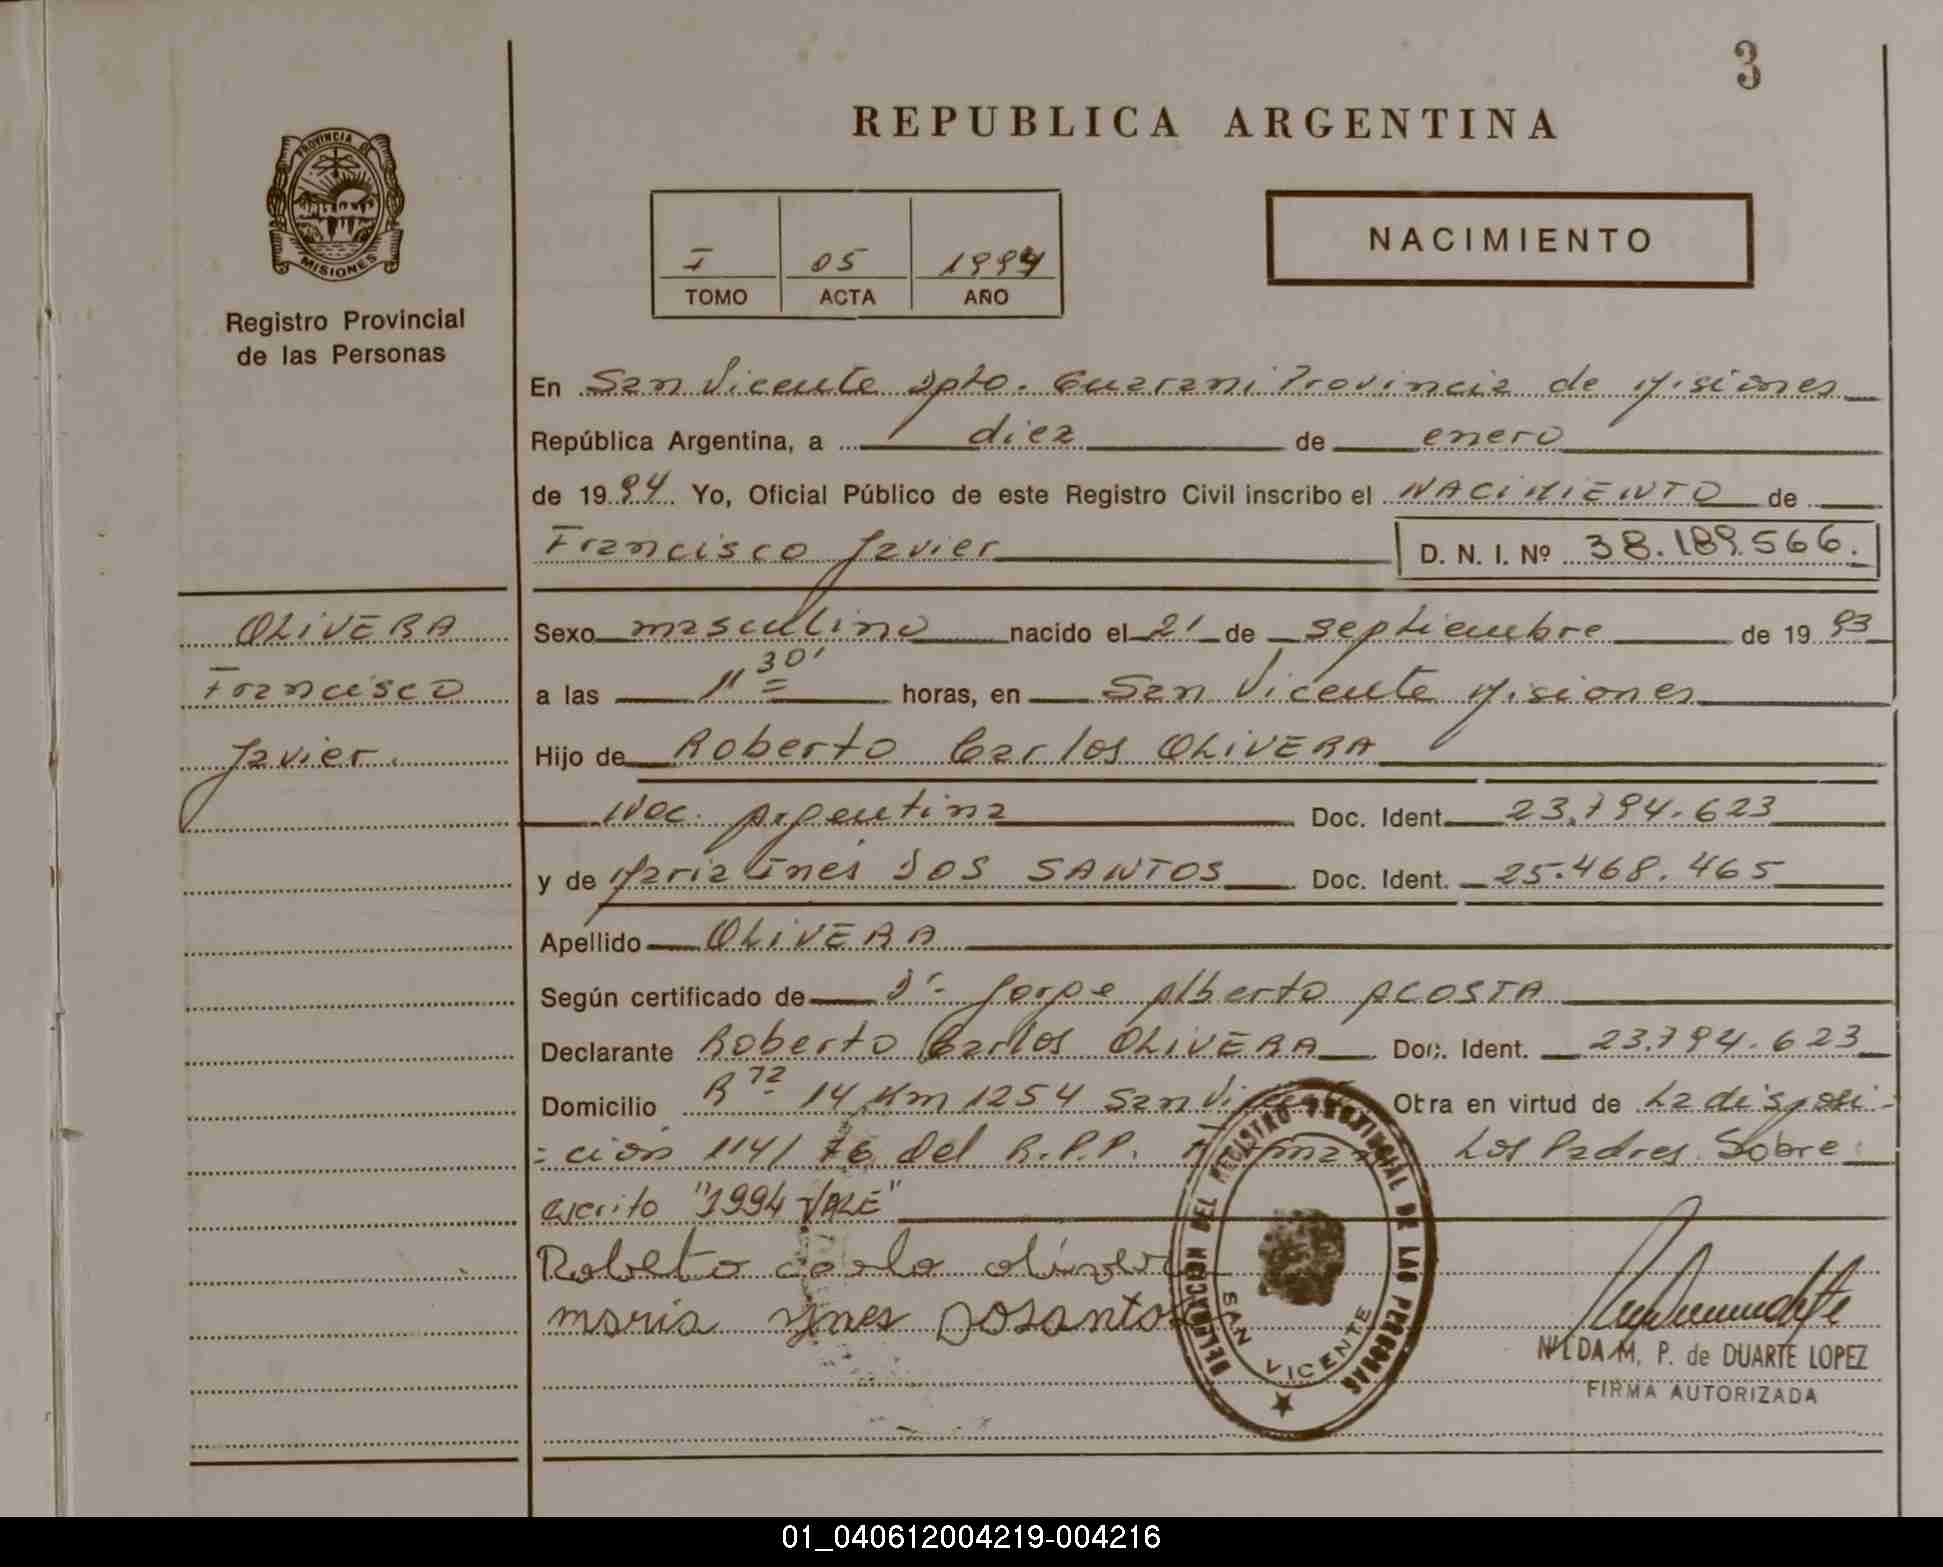 3
REPUBLICA ARGENTINA
PROVINCIA DE
MISIONES
Registro Provincial
de las Personas
I 05 1994
TOMO ACTA AÑO
NACIMIENTO
En San Vicente Dpto. Guarani Provincia de Misiones
República Argentina, a diez de enero
de 1994 Yo, Oficial Público de este Registro Civil inscribo el NACIMIENTO de
Francisco Javier D. N. I. Nº 38.189.566.
OLIVERA
Francisco
Javier
Sexo masculino nacido el 21 de septiembre de 1993
a las 11 30' horas, en San Vicente Misiones
Hijo de Roberto Carlos OLIVERA
Nac. Argentina Doc. Ident. 23.794.623
y de Maria Ines DOS SANTOS Doc. Ident. 25.468.465
Apellido OLIVERA
Según certificado de Dr. Jorge Alberto ACOSTA
Declarante Roberto Carlos OLIVERA Doc. Ident. 23.794.623
Domicilio R 14 Km 1254 San Vicente Obra en virtud de La disposi-
=ción 114/76 del R.P.P. Firman Los Padres Sobre
escrito "1994 VALE"
Roberto carlo olivera
maria ynes Dosantos
DELEGACION DEL REGISTRO PROVINCIAL DE LAS PERSONAS
SAN VICENTE
NILDA M. P. de DUARTE LOPEZ
FIRMA AUTORIZADA
01_040612004219-004216